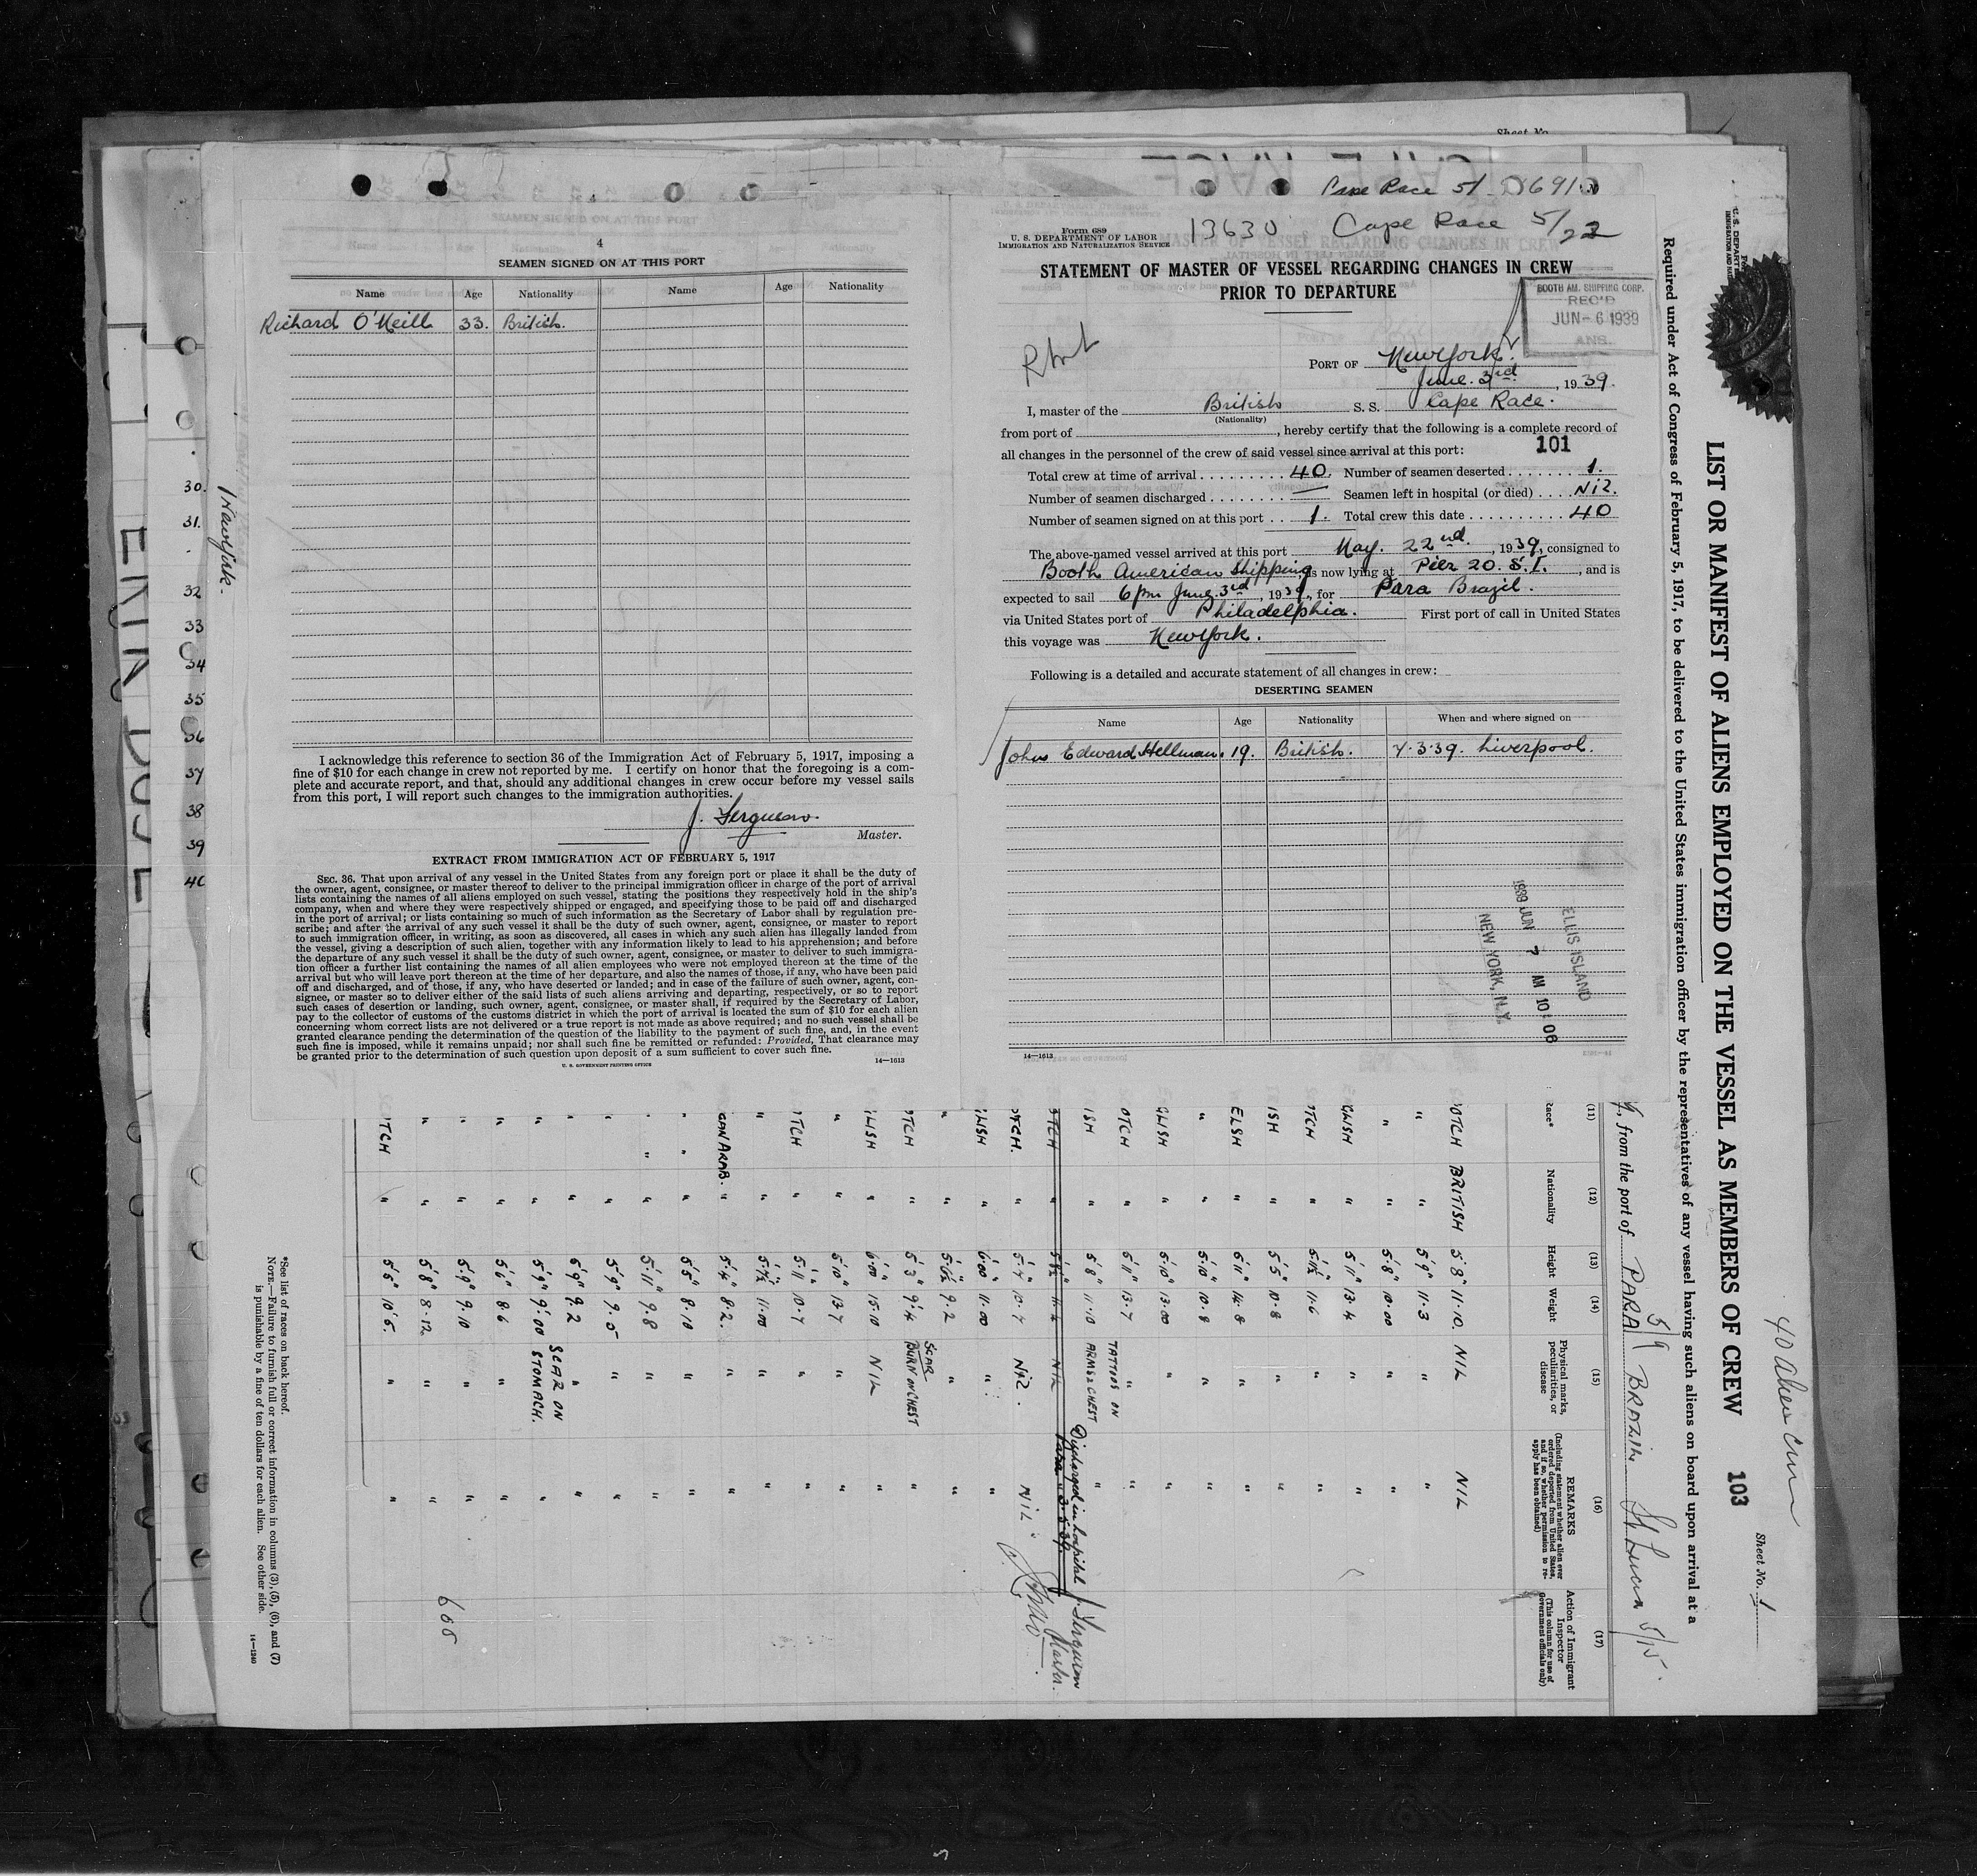 4
SEAMEN SIGNED ON AT THIS PORT
Name Age Nationality Name Age Nationality
Richard O'Neill 33. British.
I acknowledge this reference to section 36 of the Immigration Act of February 5, 1917, imposing a
fine of $10 for each change in crew not reported by me. I certify on honor that the foregoing is a com-
plete and accurate report, and that, should any additional changes in crew occur before my vessel sails
from this port, I will report such changes to the immigration authorities.
J. Ferguson.
Master.
EXTRACT FROM IMMIGRATION ACT OF FEBRUARY 5, 1917
SEC. 36. That upon arrival of any vessel in the United States from any foreign port or place it shall be the duty of
the owner, agent, consignee, or master thereof to deliver to the principal immigration officer in charge of the port of arrival
lists containing the names of all aliens employed on such vessel, stating the positions they respectively hold in the ship's
company, when and where they were respectively shipped or engaged, and specifying those to be paid off and discharged
in the port of arrival; or lists containing so much of such information as the Secretary of Labor shall by regulation pre-
scribe; and after the arrival of any such vessel it shall be the duty of such owner, agent, consignee, or master to report
to such immigration officer, in writing, as soon as discovered, all cases in which any such alien has illegally landed from
the vessel, giving a description of such alien, together with any information likely to lead to his apprehension; and before
the departure of any such vessel it shall be the duty of such owner, agent, consignee, or master to deliver to such immigra-
tion officer a further list containing the names of all alien employees who were not employed thereon at the time of the
arrival but who will leave port thereon at the time of her departure, and also the names of those, if any, who have been paid
off and discharged, and of those, if any, who have deserted or landed; and in case of the failure of such owner, agent, con-
signee, or master so to deliver either of the said lists of such aliens arriving and departing, respectively, or so to report
such cases of desertion or landing, such owner, agent, consignee, or master shall, if required by the Secretary of Labor,
pay to the collector of customs of the customs district in which the port of arrival is located the sum of $10 for each alien
concerning whom correct lists are not delivered or a true report is not made as above required; and no such vessel shall be
granted clearance pending the determination of the question of the liability to the payment of such fine, and, in the event
such fine is imposed, while it remains unpaid; nor shall such fine be remitted or refunded: Provided, That clearance may
be granted prior to the determination of such question upon deposit of a sum sufficient to cover such fine.
U. S. GOVERNMENT PRINTING OFFICE 14—1613
Cape Race 5/
13630 Cape Race 5/22
Form 689
U. S. DEPARTMENT OF LABOR
IMMIGRATION AND NATURALIZATION SERVICE
STATEMENT OF MASTER OF VESSEL REGARDING CHANGES IN CREW
PRIOR TO DEPARTURE
BOOTH AM. SHIPPING CORP.
REC'D
JUN-6 1939
ANS.
PORT OF New York.
June. 3rd, 1939.
I, master of the British S. S. Cape Race.
(Nationality)
from port of , hereby certify that the following is a complete record of
all changes in the personnel of the crew of said vessel since arrival at this port:
101
Total crew at time of arrival 40. Number of seamen deserted 1.
Number of seamen discharged — Seamen left in hospital (or died) Nil.
Number of seamen signed on at this port 1. Total crew this date 40
The above-named vessel arrived at this port May. 22nd., 1939, consigned to
Booth American Shipping, is now lying at Pier 20. S.I., and is
expected to sail 6pm June 3rd, 1939, for Para Brazil.
via United States port of Philadelphia. First port of call in United States
this voyage was New York.
Following is a detailed and accurate statement of all changes in crew:
DESERTING SEAMEN
Name Age Nationality When and where signed on
John Edward Hellman. 19. British. 7.3.39. Liverpool.
ELLIS ISLAND
1939 JUN 7 AM 10 06
NEW YORK, N.Y.
14—1613
30.
31.
32
33
34
35
36
37
38
39
40
Sheet No. 1
40 Alien crew
LIST OR MANIFEST OF ALIENS EMPLOYED ON THE VESSEL AS MEMBERS OF CREW 103
Required under Act of Congress of February 5, 1917, to be delivered to the United States immigration officer by the representatives of any vessel having such aliens on board upon arrival at a
, from the port of PARA 5/9 BRAZIL St Lucia 5/15.
(11) (12) (13) (14) (15) (16) (17)
Race* Nationality Height Weight Physical marks, peculiarities, or disease REMARKS (Including statement whether alien ever ordered deported from United States, and if so, whether permission to re-apply has been obtained) Action of Immigrant Inspector (This column for use of Government officials only)
OTCH BRITISH 5'8" 11.10. NIL NIL
" " 5'9" 11.3 " "
" " 5'8" 10.00 " "
GLISH " 5'11" 13.4 " "
OTCH " 5'11½ 11.6 " "
ISH " 5'5" 10.8 " "
ELSH " 6'11" 14.8 " "
" " 5'10" 10.8 " "
GLISH " 5'10" 13.00 " "
OTCH " 5'11" 13.7 " "
ISH " 5'8" 11.10 TATTOOS ON ARMS & CHEST "
OTCH " 5'8½" 11.4 NIL Discharged in hospital Para 3.5.39. J. Ferguson Master.
OTCH. " 5'4" 10.4 Nil. NIL.
GLISH " 6'00" 11.00 " "
" " 5'6½" 9.2 " "
OTCH " 5'3" 9.4 SCAR BURN ON CHEST "
GLISH " 6'00" 15.10 NIL "
" " 5'10" 13.7 " "
OTCH " 5'11" 10.7 " "
" " 5'7½" 11.00 " "
CAN ARAB. " 5'4" 8.2. " "
" " 5'5" 8.10 " "
" " 5'11" 9.8 " "
" " 5'9" 9.5 " "
" " 6'9" 9.2 " "
" " 5'9" 9.00 SCAR ON STOMACH. "
" " 5'6" 8.6 " "
" " 5'9" 9.10 "
" " 5'8" 8.12 " "
OTCH " 5'5" 10.6. " "
*See list of races on back hereof.
NOTE.—Failure to furnish full or correct information in columns (3), (5), (6), and (7)
is punishable by a fine of ten dollars for each alien. See other side.
14—1240